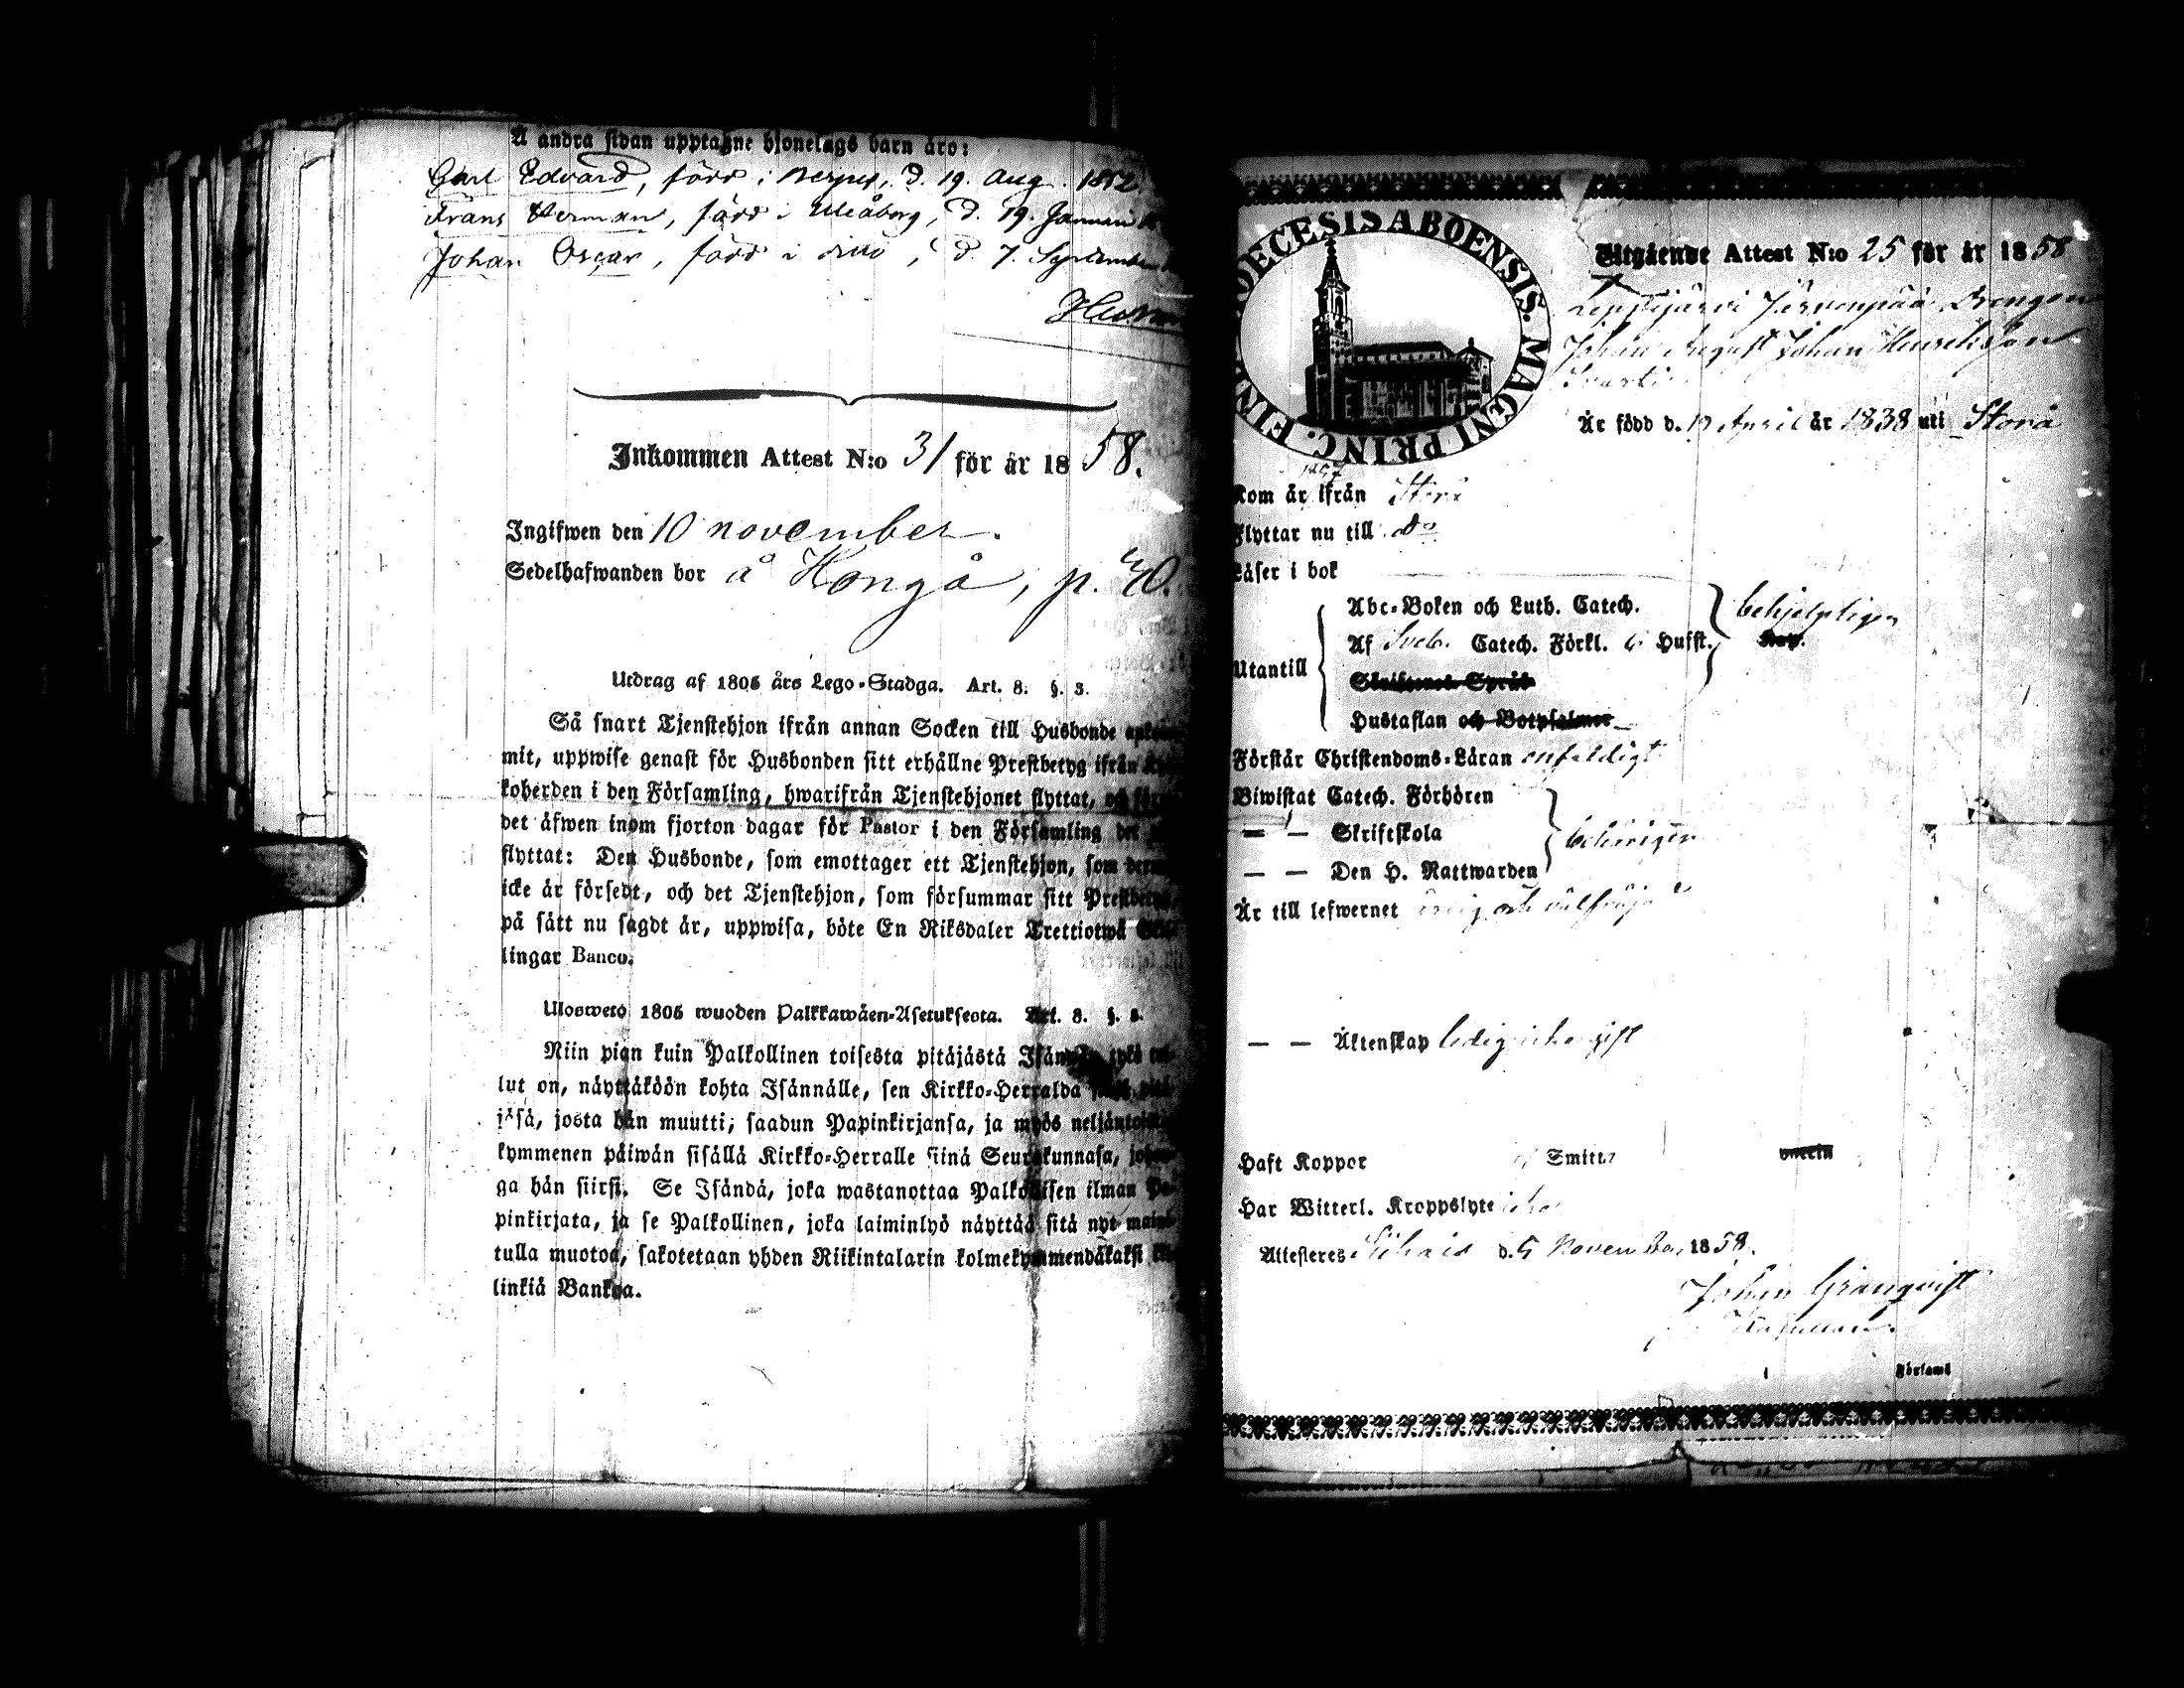 Å andra sidan upptagne hjonelags barn äro:
Carl Edvard, född i d. 19. Aug. 1852
Frans Herman, född i Uleåborg, d. 19. Januari
Johan Oscar, född i dito, d. 7. September
Inkommen Attest N:o 31 för år 1858.
Ingifwen den 10 november.
Sedelhafwanden bor å Kongå, p. 40.
Utdrag af 1805 års Lego-Stadga. Art. 8. §. 3.
Så snart Tjenstehjon ifrån annan Socken till Husbonde
mit, uppwise genast för Husbonden sitt erhållne Prestbetyg ifrån
koherden i den Församling, hwarifrån Tjenstehjonet flyttat, och
det äfwen inom fjorton dagar för Pastor i den Församling
flyttat: Den Husbonde, som emottager ett Tjenstehjon, som
icke är försedt, och det Tjenstehjon, som försummar sitt
på sätt nu sagdt är, uppwisa, böte En Riksdaler Trettiotwå
lingar Banco.
Ulosweto 1805 wuoden Palkkawäen-Asetuksesta. Art. 8. §. 3.
Niin pian kuin Palkollinen toisesta pitäjästä
lut on, näyttäköön kohta Isännälle, sen Kirkko-Herralda
jäsä, josta hän muutti, saadun Papinkirjansa, ja myös
kymmenen päiwän sisällä Kirkko-Herralle siinä Seurakunnasa,
ga hän siirsi. Se Isändä, joka wastanottaa Palkollisen ilman
pinkirjata, ja se Palkollinen, joka laiminlyö näyttää sitä nyt
tulla muotoa, sakotetaan yhden Riikintalarin kolmekymmendäkaksi
linkiä Bankoa.
DECESIS ABOENSIS. MAGNI PRINC. FIN
Utgående Attest N:o 25 för år 1858
Leppijärvi Järvenpää Drengen
Johan August Johan Henriksson
Är född d. April år 1838 uti Storå
1857
Kom år ifrån Storå
Flyttar nu till Do
Läser i bok
Utantill
Abc-Boken och Luth. Catech.
Af Sveb. Catech. Förkl. Hufst.
behjelpligen
Skriftenes Språk
Hustaflan och Botpsalmer
Förstår Christendoms-Läran enfaldigt
Biwistat Catech. Förhören
— — Skriftskola
— — Den H. Nattwarden
behörigen
Är till lefwernet ärlig och välfräjd
— — Äktenskap ledig icke gift
Haft Koppor Smitta
Har Witterl. Kroppslyte icke
Attesteres d. 5 November 1858.
Johan Granqvist
Församl